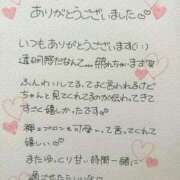 ありがとうございました
いつもありがとうございます(:)
透明感だなんて…照れちゃいます
ふんわりしてるってよく言われるけど
ちゃんと見てくれてるのが伝わってきて
すごく嬉しかったです
も可愛って言ってくれて
嬉しい
またゆっくり甘い時間一緒に
過ごさせたらいいな